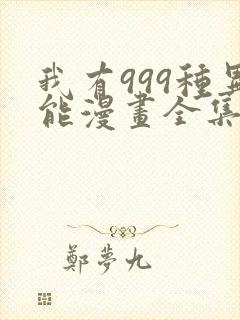 我有999種異
能漫畫全集
鄭夢九